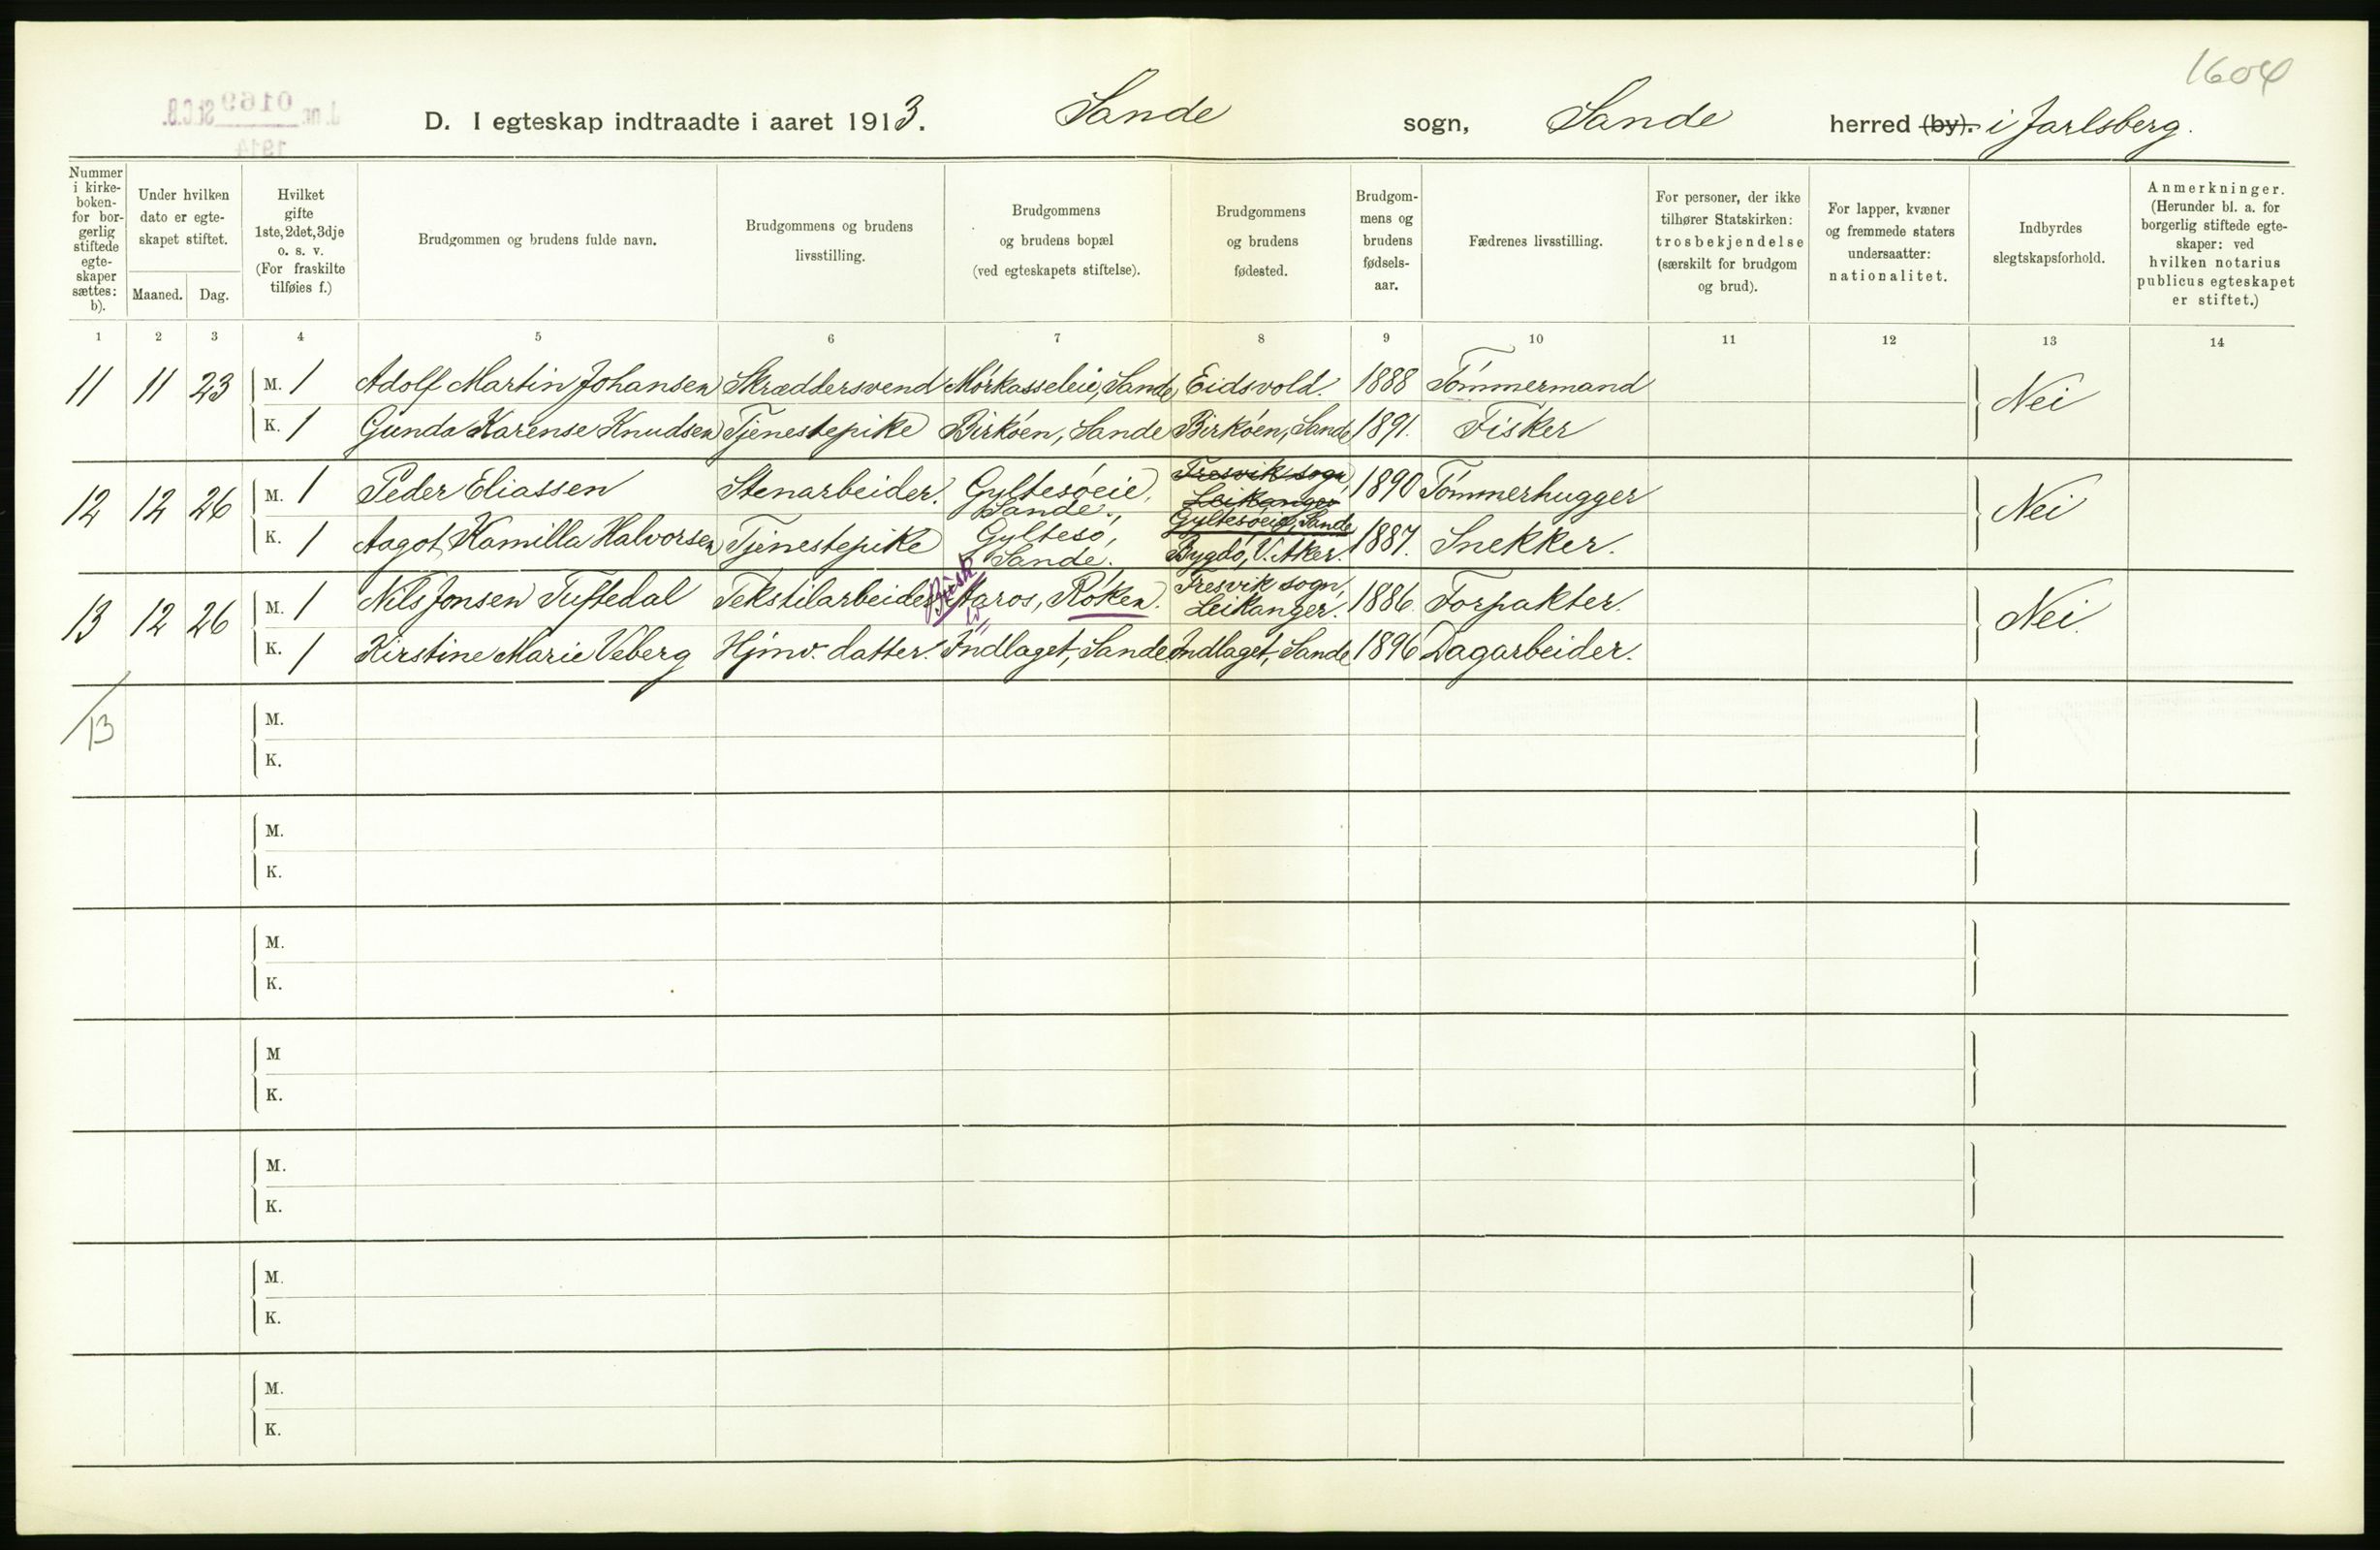 1604
J. nr. 0169 St.C.B.
1914
D. I egteskap indtraadte i aaret 1913. Sande sogn, Sande herred (by). i Jarlsberg.
Nummer i kirke-boken- for bor-gerlig stiftede egte-skaper sættes: b).
Under hvilken dato er egte-skapet stiftet.
Maaned. Dag.
Hvilket gifte 1ste, 2det, 3dje o. s. v. (For fraskilte tilføies f.)
Brudgommen og brudens fulde navn.
Brudgommens og brudens livsstilling.
Brudgommens og brudens bopæl (ved egteskapets stiftelse).
Brudgommens og brudens fødested.
Brudgom-mens og brudens fødsels-aar.
Fædrenes livsstilling.
For personer, der ikke tilhører Statskirken: trosbekjendelse (særskilt for brudgom og brud).
For lapper, kvæner og fremmede staters undersaatter: nationalitet.
Indbyrdes slegtskapsforhold.
Anmerkninger. (Herunder bl. a. for borgerlig stiftede egte-skaper: ved hvilken notarius publicus egteskapet er stiftet.)
1 2 3 4 5 6 7 8 9 10 11 12 13 14
11 11 23 M. 1 Adolf Martin Johansen Skræddersvend Mörkasseleie, Sande Eidsvold. 1888 Tömmermand Nei
K. 1 Gunda Karense Knudsen Tjenestepike Birköen, Sande Birköen, Sande 1891. Fisker
12 12 26 M. 1 Peder Eliassen Stenarbeider. Gyltesöeie, Sande. Fresvik sogn, Leikanger Gyltesöeie, Sande 1890 Tömmerhugger Nei
K. 1 Aagot Kamilla Halvorsen Tjenestepike Gyltesö, Sande. Bygdö, V. Aker. 1887. Snekker.
13 12 26 M. 1 Nils Jonsen Tuftedal Tekstilarbeider Aaros, Röken. Fresvik sogn, Leikanger. 1886. Forpakter. Nei.
K. 1 Kirstine Marie Veberg Hjmv. datter. Indlaget, Sande Indlaget, Sande 1896 Dagarbeider.
13
M.
K.
M.
K.
M.
K.
M
K.
M.
K.
M.
K.
M.
K.